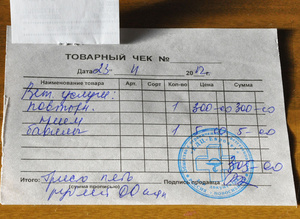 ТОВАРНЫЙ ЧЕК №
Дата 23 - 11 20 12 г.
Наименование товара Арт. Сорт Кол-во Цена Сумма
Вет. услуги:
повторн. 1 300-00 300-00
прием
бахилы 1 5-00 5-00
305-00
Итого: Триста пять
рублей 00 коп
(сумма прописью) Подпись продавца